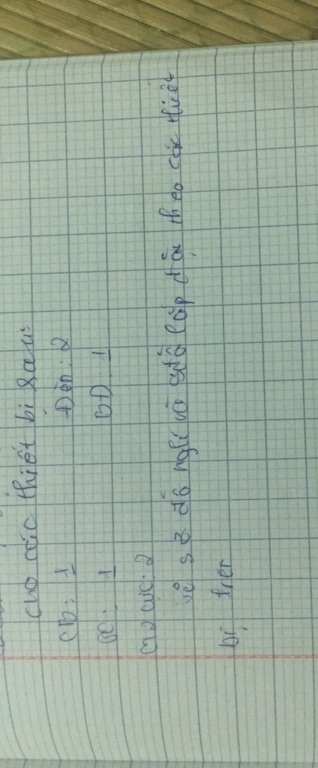 cho các thiết bị sau:
CB: 1 Đèn: 2
ổC: 1 BD: 1
CT 2 cực: 2
vẽ sơ đồ nglí và sđồ lắp đặt theo các thiết
bị trên